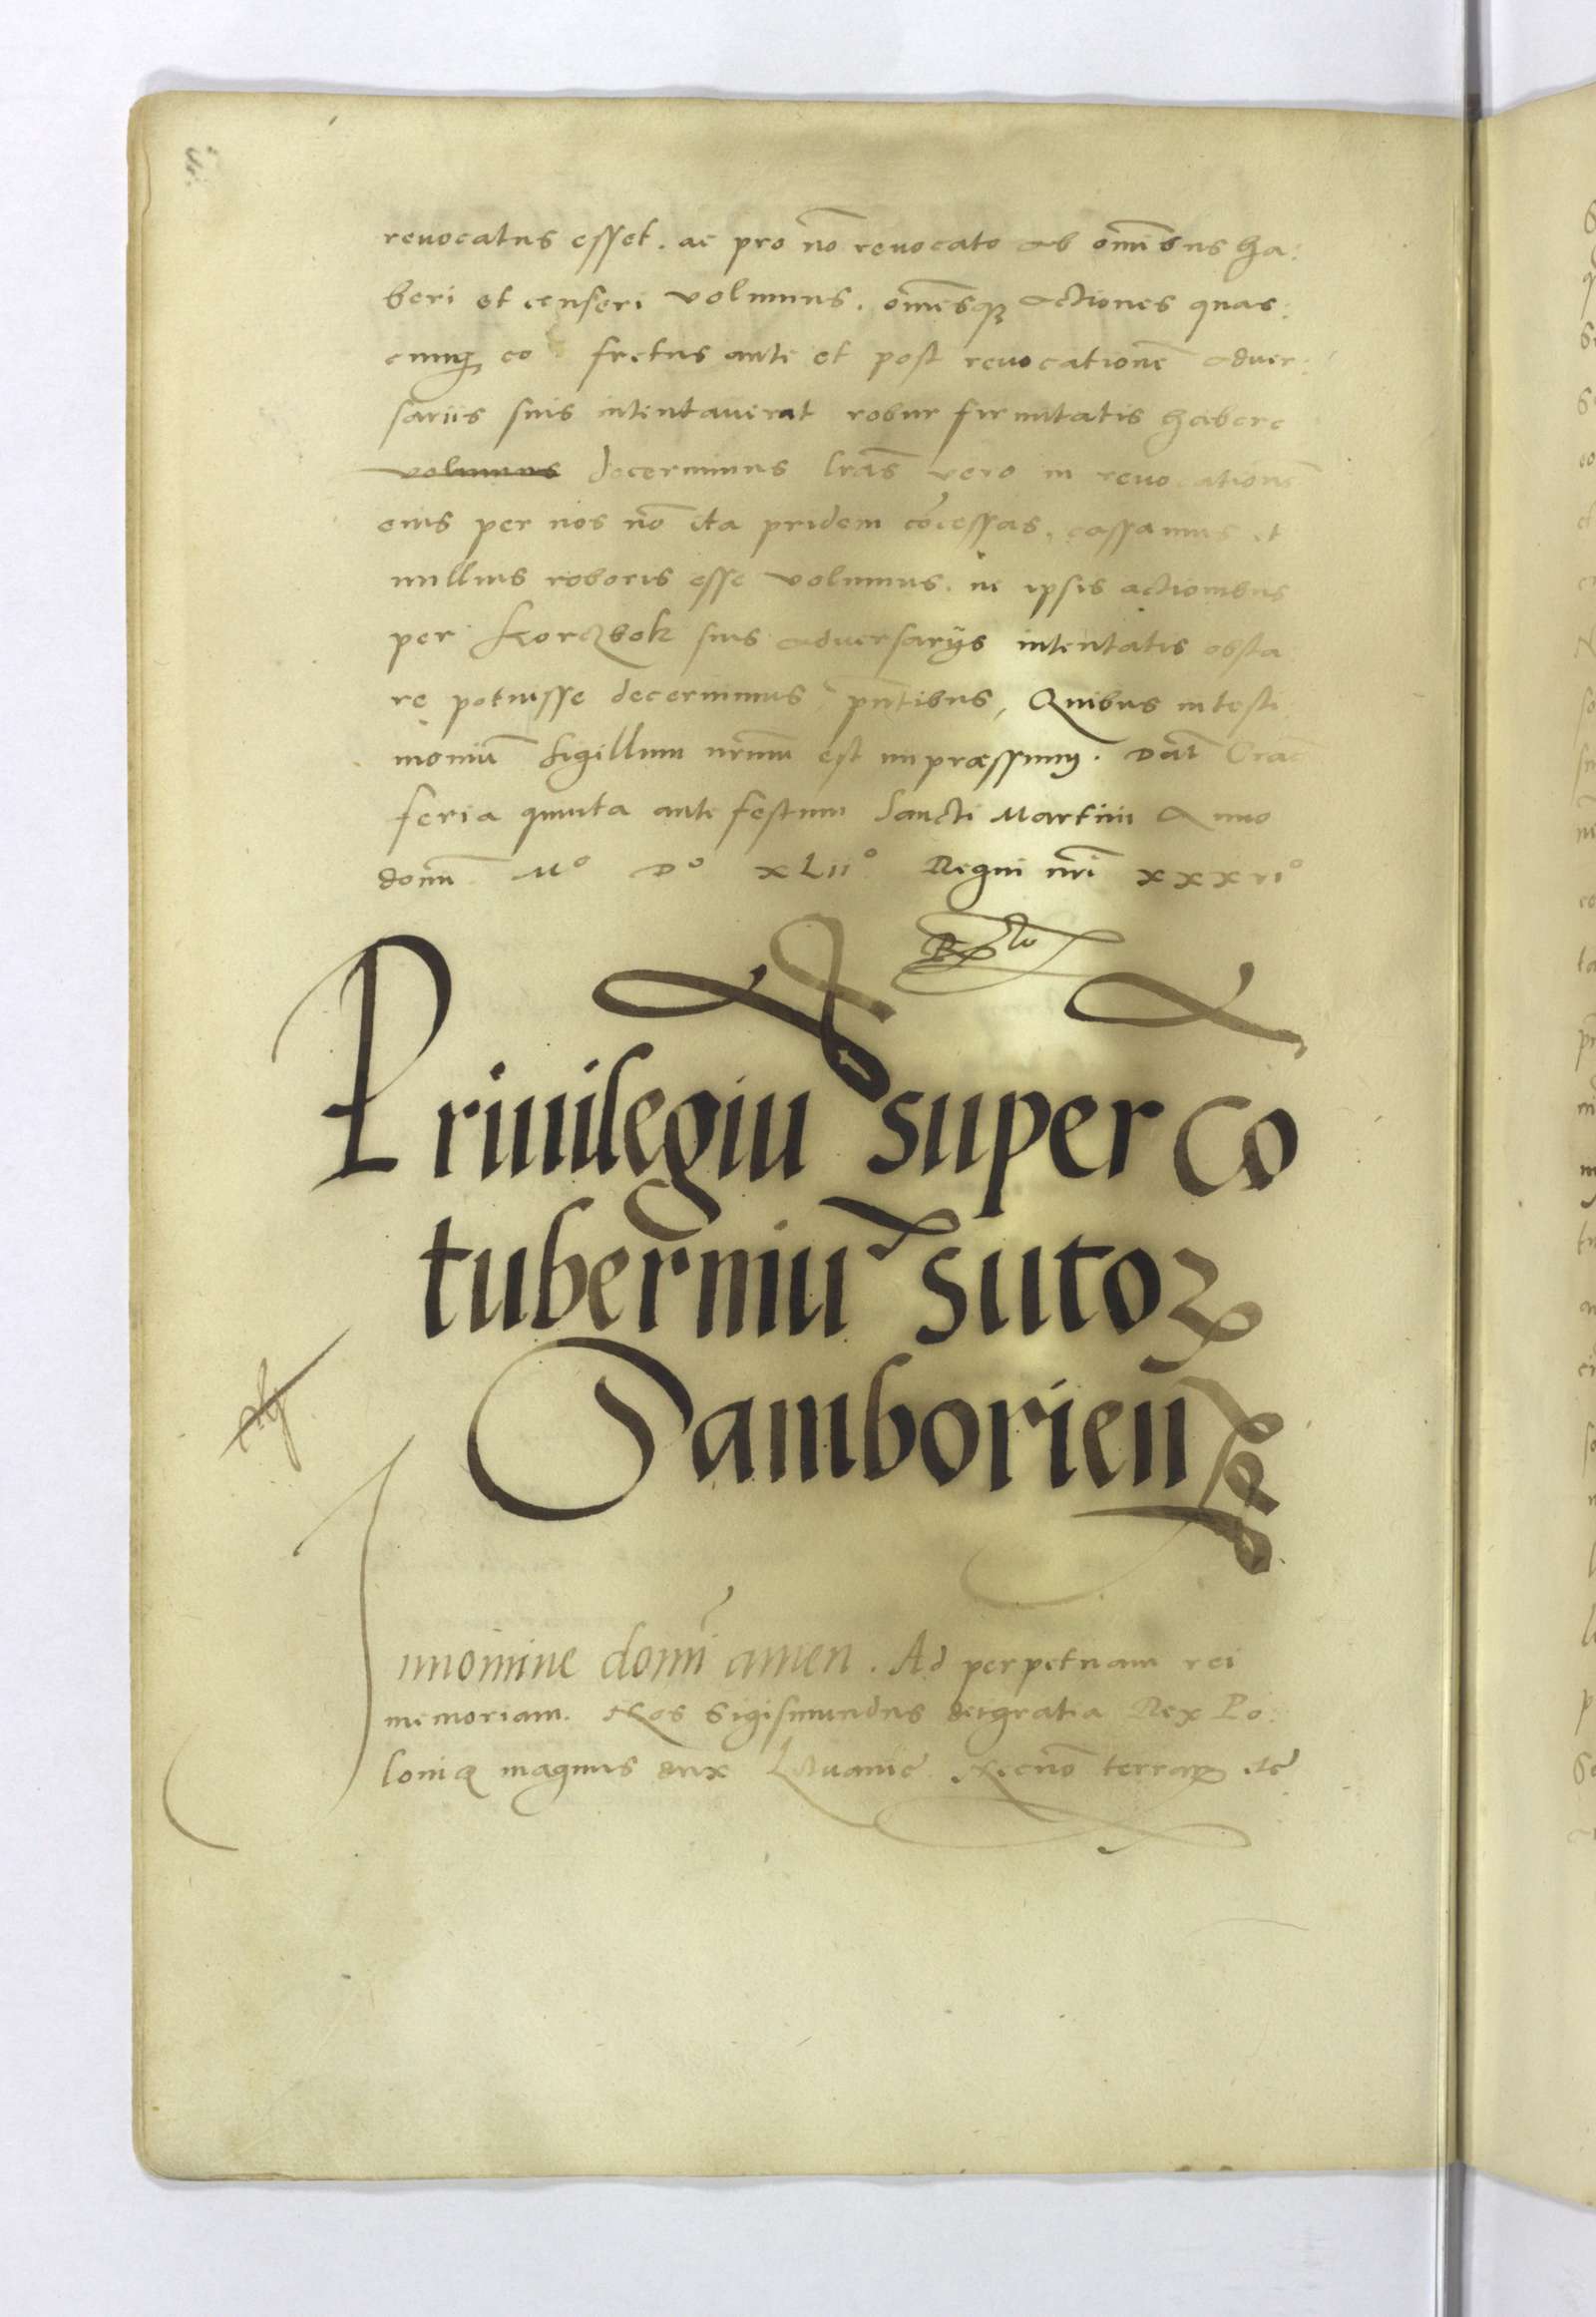 reuocatus esset. ac pro nō reuocato ab om̄ibus ha:
beri et censeri volumus. om̄esqꝫ actiones quas:
cunqꝫ eo fretus ante et post reuocationē aduer:
sariis suis intentauerat robur firmitatis habere
volumus decernimus lrās vero in reuocationē
eius per nos nō ita pridem cōcessas, cassamus et
nullius roboris esse volumus. ne ipsis actionibus
per Korczbok suis aduersarijs intentatis obsta
re potuisse decernimus pn̄tibus, Quibus in testi
moniū sigillum nr̄um est impræssum. Dat̄ Crac̄
feria quinta ante festum Sancti Martini Anno
domī Mº Dº XLIIº Regni nr̄i xxxviº
Priuilegiū super cō
tuberniū sutoꝝ
Samborien̄
In nomine domī amen. Ad perpetuam rei
memoriam. Nos Sigismundus dei gratia Rex Po:
loniæ magnus dux Lituanie Necnō terraꝝ etc̄